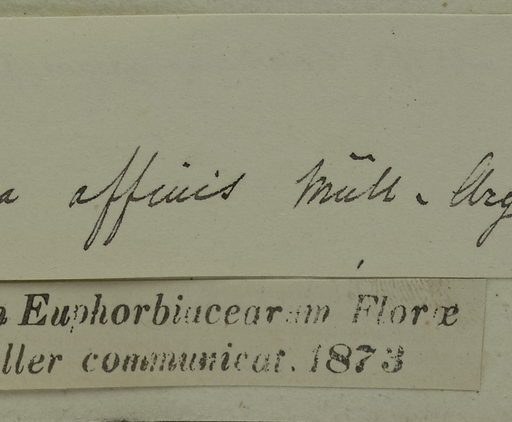 a affinis Müll. Arg
Euphorbiacearum Floræ
ller communicat. 1873